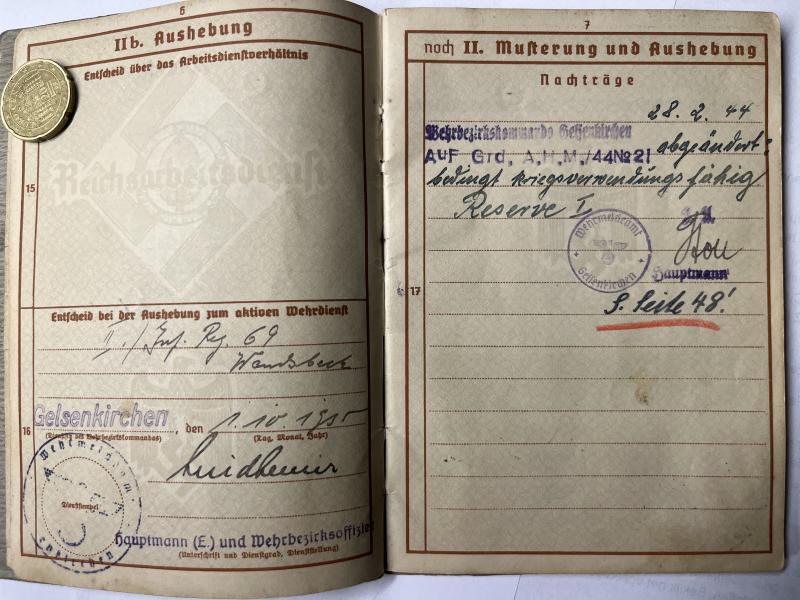 6
IIb. Aushebung
Entscheid über das Arbeitsdienstverhältnis
Reichsarbeitsdienst
15
Entscheid bei der Aushebung zum aktiven Wehrdienst
II./Inf. Reg. 69
Wandsbeck
Gelsenkirchen, den 1.10.1935
16
(Tag, Monat, Jahr)
Wehrmeldeamt
Dienststempel
Hauptmann (E.) und Wehrbezirksoffizier
(Unterschrift und Dienstgrad, Dienststellung)
7
noch II. Musterung und Aushebung
Nachträge
28.2.44
Wehrbezirkskommando Gelsenkirchen
AUF Grd, A.H.M./44№21 abgeändert:
bedingt kriegsverwendungsfähig
Reserve I
Wehrmeldeamt
Gelsenkirchen
Hauptmann
17
S. Seite 48!